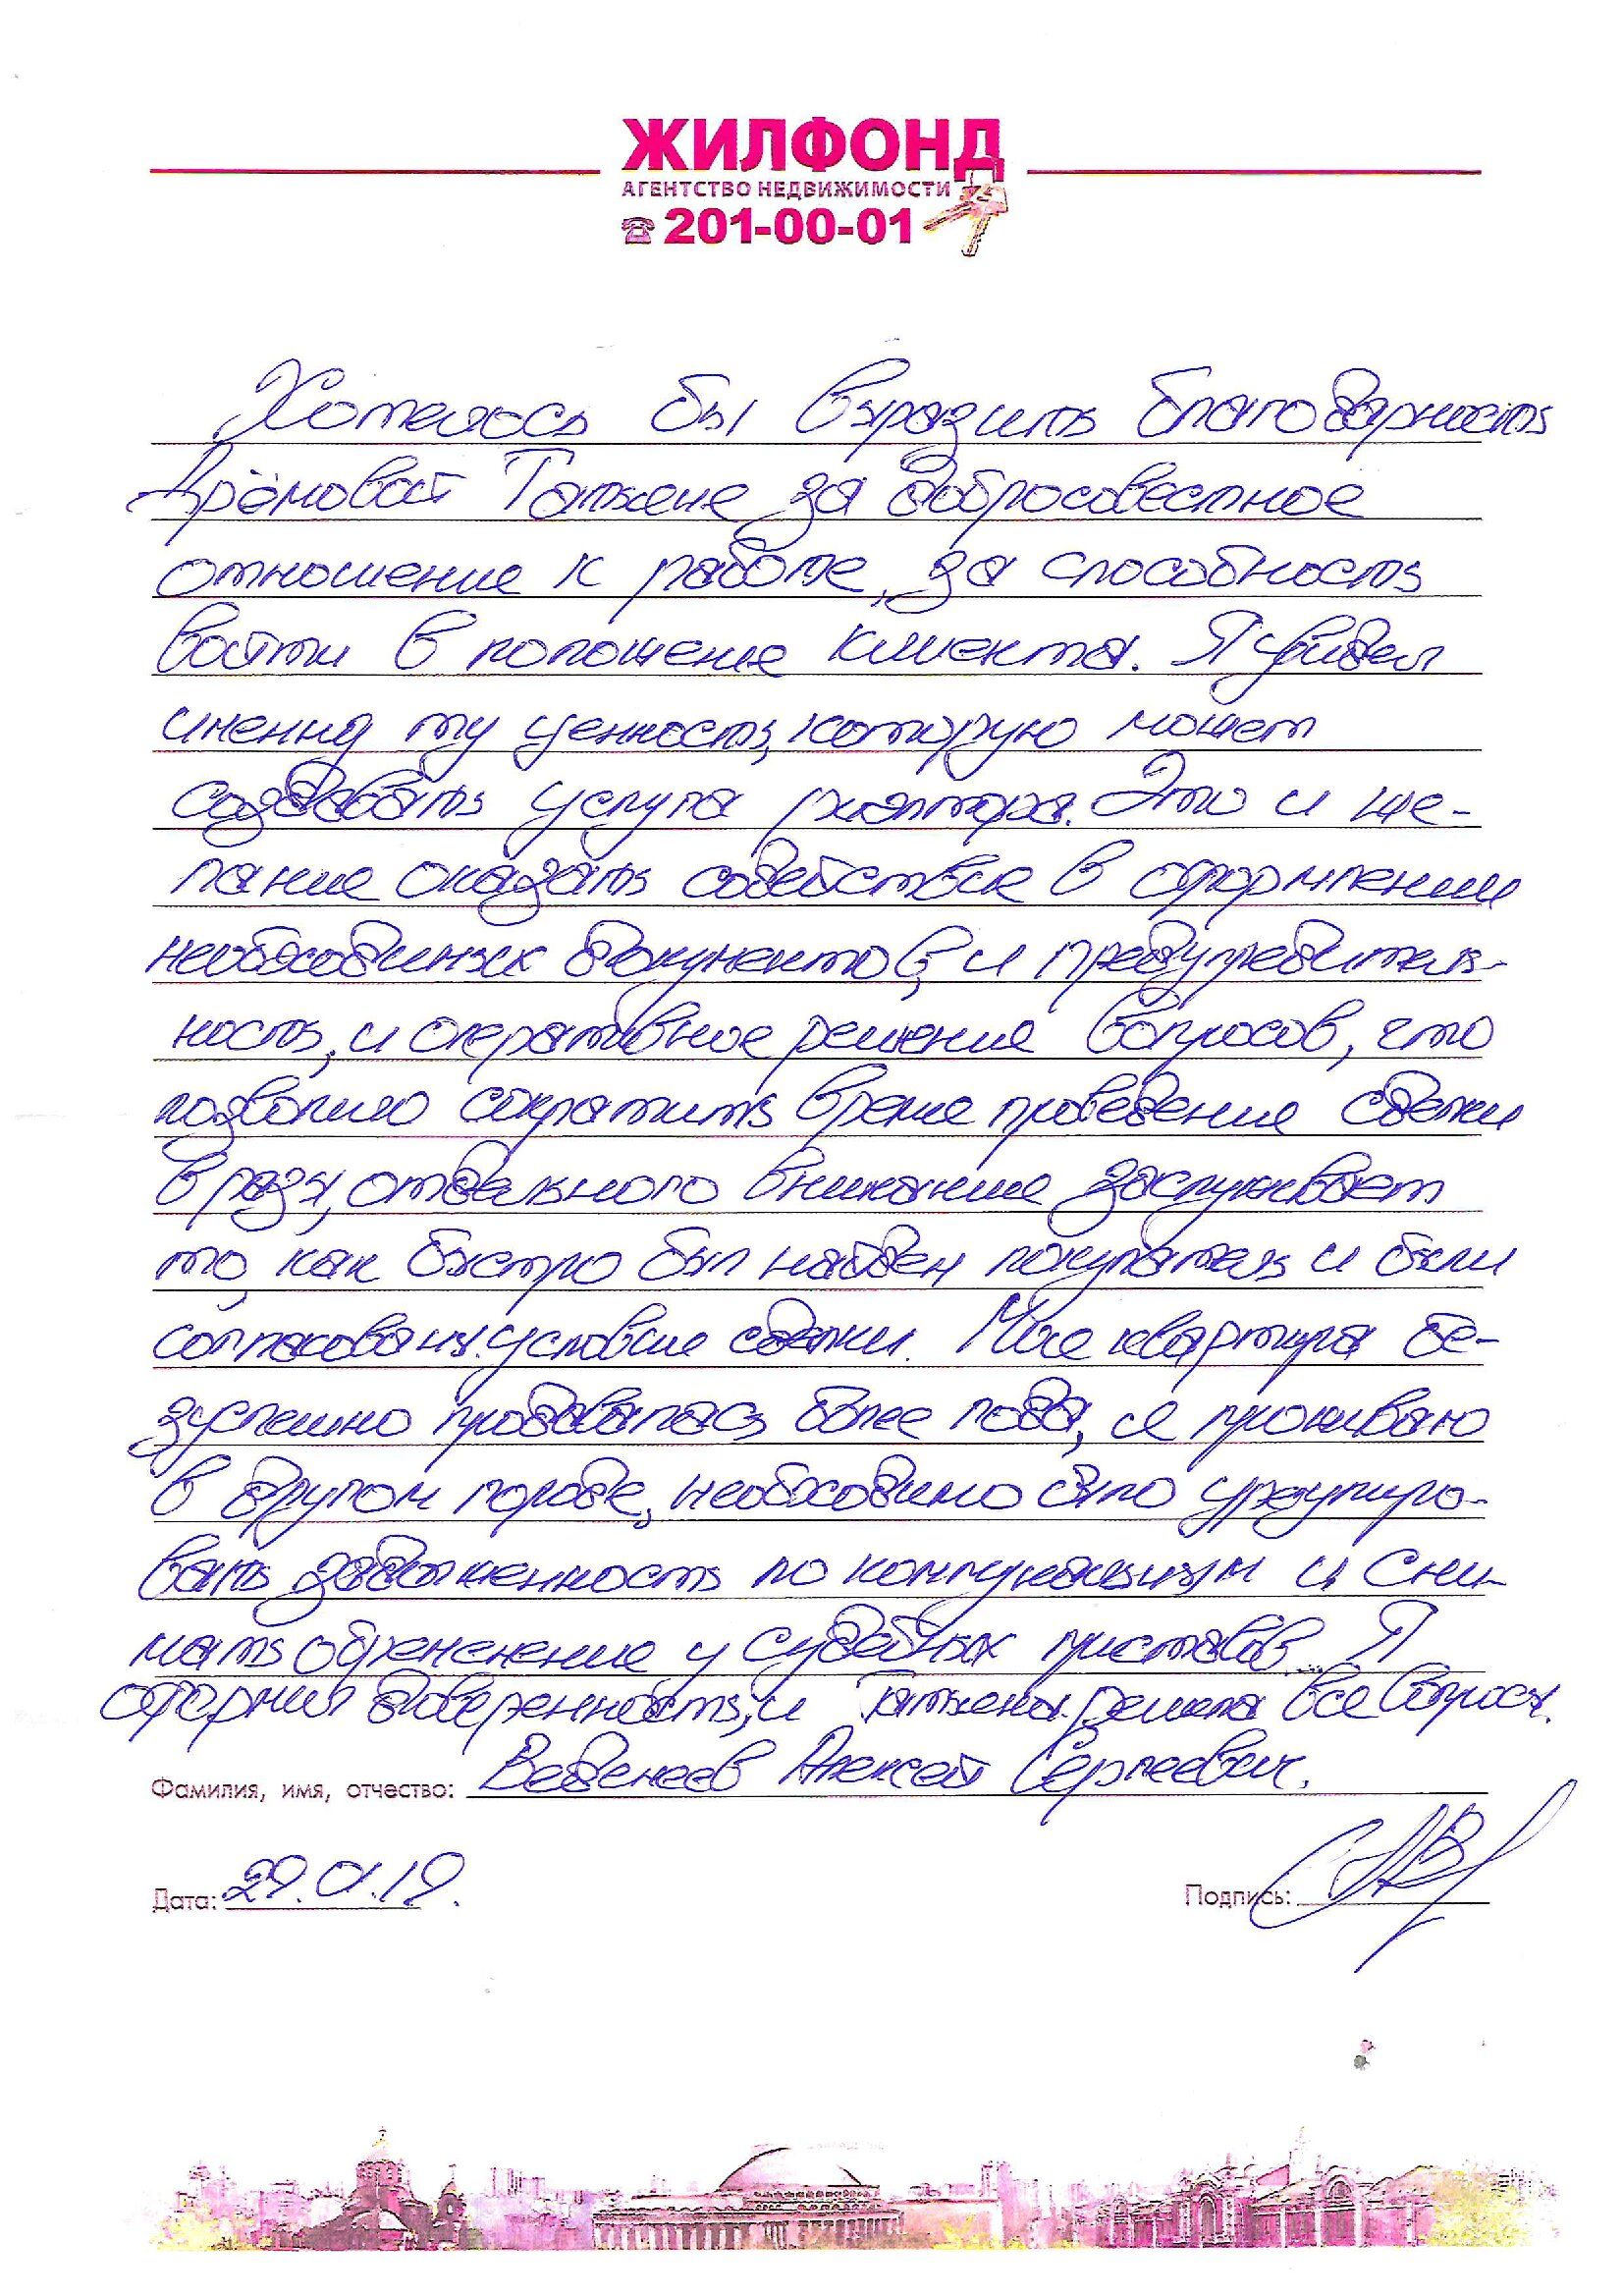 ЖИЛФОНД
АГЕНТСТВО НЕДВИЖИМОСТИ
201-00-01
Хотелось бы выразить благодарность
Арёмовой Татьяне за добросовестное
отношение к работе, за способность
войти в положение клиента. Я увидел
именно ту ценность, которую может
создавать услуга риэлтора. Это и же-
лание оказать содействие в оформлении
необходимых документов, и предупредитель-
ность, и оперативное решение вопросов, что
позволило сократить время проведения сделки
в разы, отдельного внимание заслуживает
то, как быстро был найден покупатель и были
согласованы условие сделки. Моя квартира бе-
зуспешно продавалась более года, я проживаю
в другом городе, необходимо было урегулиро-
вать задолженность по коммуникациям и сни-
мать обременение у судебных приставов. Я
оформил доверенность, и Татьяна решила все вопросы.
Фамилия, имя, отчество: Веденеев Алексей Сергеевич.
Дата: 29.01.19.
Подпись: